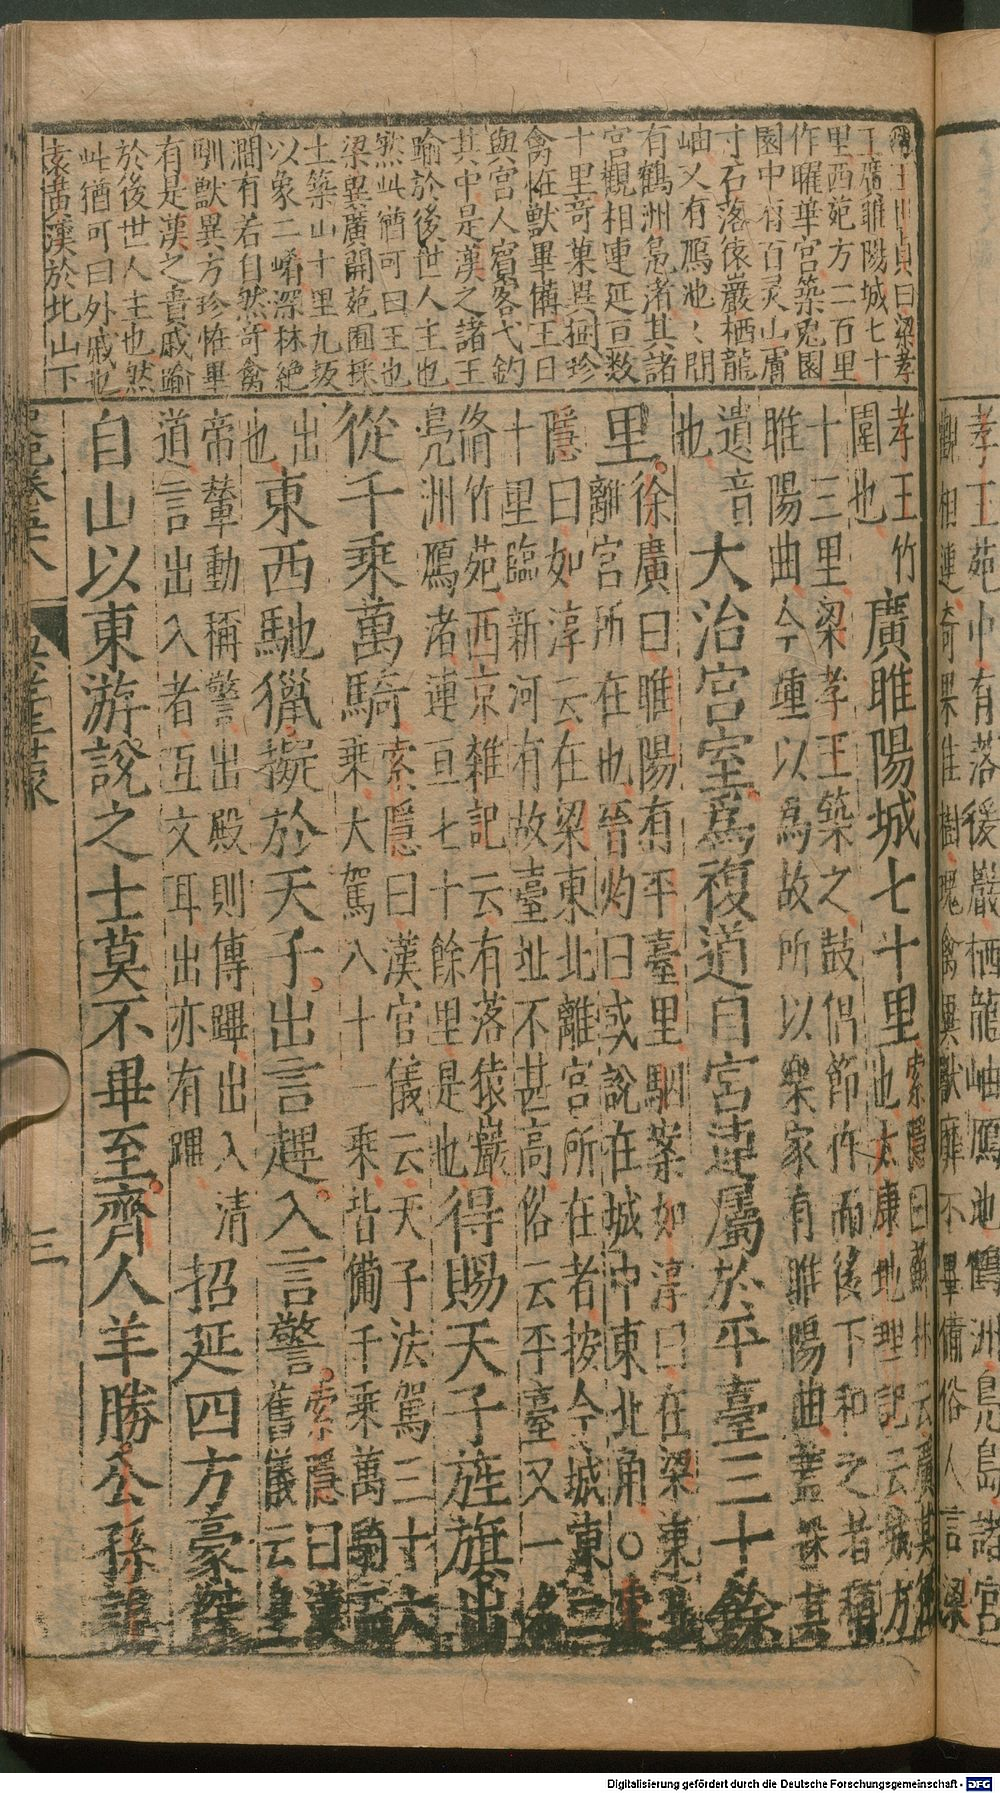 王世貞曰梁孝
王廣睢陽城七十
里西苑方二百里
作曜華宮築兎園
園中有百灵山膚
寸石落猿巖栖龍
岫又有鴈池〻間
有鶴洲凫渚其諸
宮觀相連延亘数
十里竒菓異樹珍
禽恠獸畢備王日
與宮人賓客弋釣
其中是漢之諸王
踰於後世人主也
然此猶可曰王也
梁異廣開苑囿採
土築山十里九坂
以象二崤深林絶
澗有若自然竒禽
馴獸異方珍恠畢
有是漢之貴戚踰
於後世人主也然
此猶可曰外戚也
袁黃漢於北山下
孝王竹
圍也
廣睢陽城七十里
索隱曰蘇林云廣其徑
也太康地理記云城方
十三里梁孝王築之鼓倡節作而後下和之者稱
睢陽曲今踵以爲故所以樂家有睢陽曲蓋採其
遺音
也
大治宮室爲複道自宮連屬於平臺三十餘
里
徐廣曰睢陽有平臺里駰案如淳曰在梁東北
離宮所在也晉灼曰或說在城中東北角○索
隱曰如淳云在梁東北離宮所在者按今城東二
十里臨新河有故臺址不甚高俗云平臺又一名
脩竹苑西京雜記云有落猿巖
鳧洲鴈渚連亘七十餘里是也
得賜天子旌旗出
從千乘萬騎
索隱曰漢官儀云天子法駕三十六
乘大駕八十一乘皆備千乘萬騎而
出
也
東西馳獵擬於天子出言趩入言警
索隱曰漢
舊儀云皇
帝輦動稱警出殿則傳蹕出入清
道言出入者互文耳出亦有蹕
招延四方豪傑
自山以東游說之士莫不畢至齊人羊勝公孫詭
史記卷五十八
梁孝王世家
三
孝王苑中有落猨巖栖龍岫鴈池鶴洲鳧島諸宮
觀相連奇果佳樹瑰禽異獸靡不畢備俗人言梁
Digitalisierung gefördert durch die Deutsche Forschungsgemeinschaft - DFG